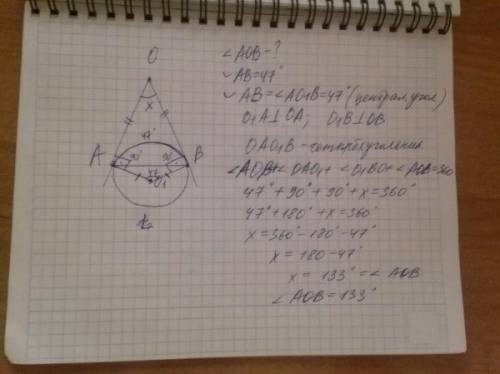 O
x
47°
A
B
90°
90°
47°
O₁
∠AOB - ?
◡AB = 47°
◡AB = ∠AO₁B = 47° (централ. угол)
O₁A ⊥ OA; O₁B ⊥ OB
OAO₁B - четырёхугольник
∠AO₁B + ∠OAO₁ + ∠O₁BO + ∠AOB = 360
47° + 90° + 90° + x = 360°
47° + 180° + x = 360°
x = 360° - 180° - 47°
x = 180 - 47°
x = 133° = ∠AOB
∠AOB = 133°